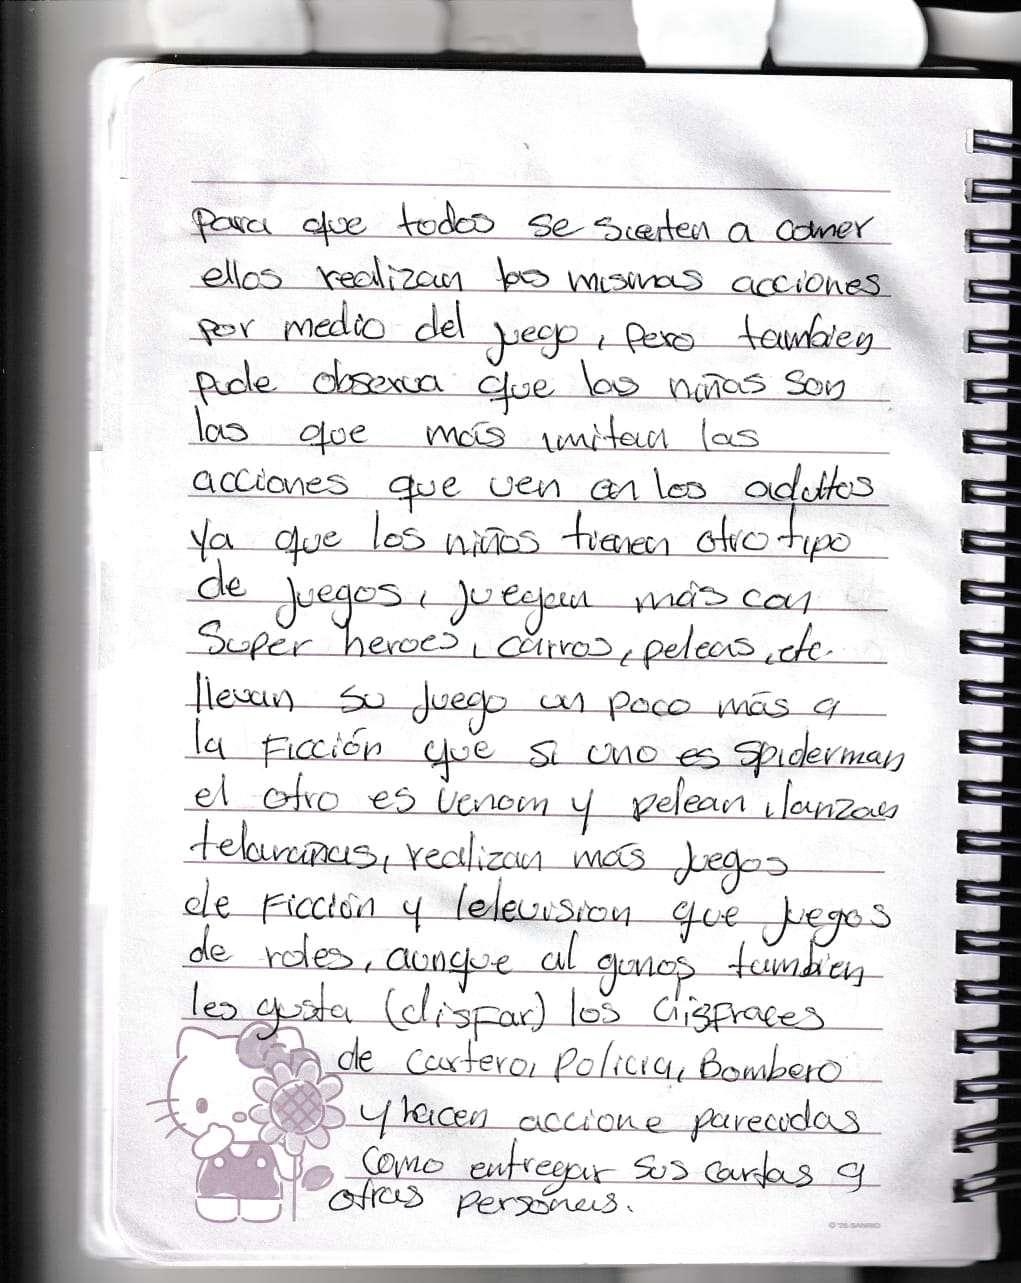 para que todos se sienten a comer
ellos realizan las mismas acciones
por medio del juego, pero tambien
pude observa que las niñas son
las que más imitan las
acciones que ven en los adultos
ya que los niños tienen otro tipo
de juegos, juegan más con
Super heroes, carros, peleas, etc.
llevan su juego un poco más a
la Ficción que si uno es spiderman
el otro es venom y pelean, lanzan
telarañas, realizan más juegos
de Ficción y television que juegos
de roles, aunque al gunos tambien
les gusta (disfar) los disfraces
de cartero, Policia, Bombero
y hacen accione parecidas
como entregar sus cartas a
otras personas.
© '25 SANRIO